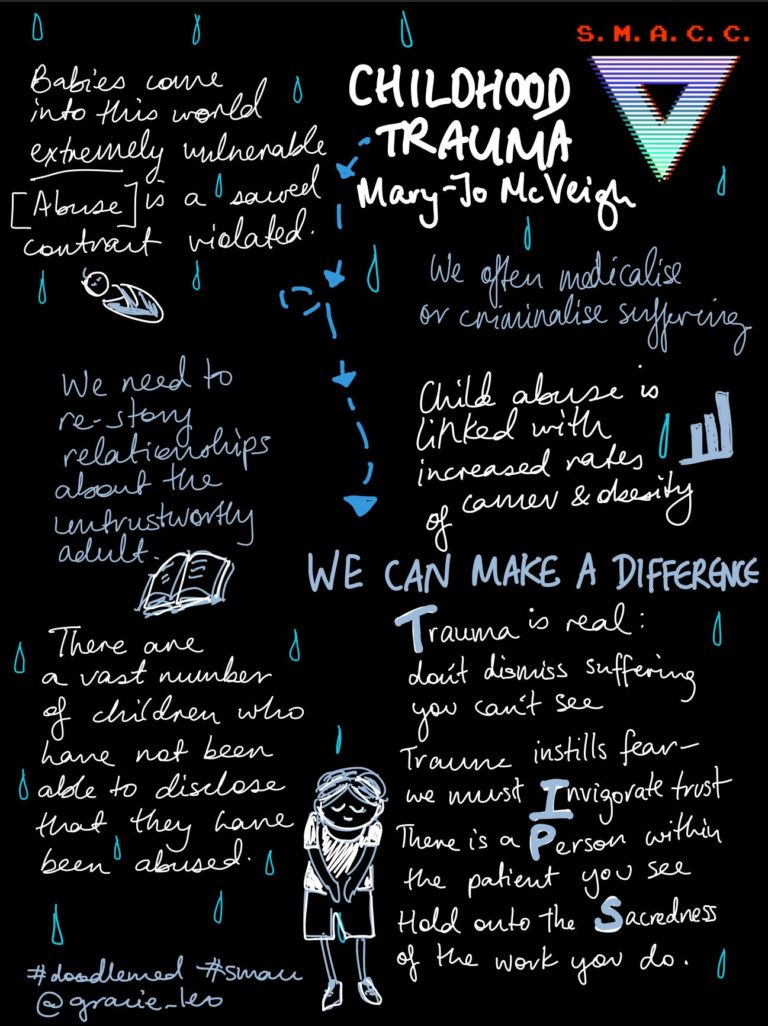 S. M. A. C. C.
CHILDHOOD
TRAUMA
Mary-Jo McVeigh
Babies come
into this world
extremely vulnerable
[Abuse] is a sacred
contract violated.
We often medicalise
or criminalise suffering
We need to
re-story
relationships
about the
untrustworthy
adult.
Child abuse is
linked with
increased rates
of cancer & obesity
WE CAN MAKE A DIFFERENCE
There are
a vast number
of children who
have not been
able to disclose
that they have
been abused.
Trauma is real:
don't dismiss suffering
you can't see
Trauma instills fear—
we must Invigorate trust
There is a Person within
the patient you see
Hold onto the Sacredness
of the work you do.
#doodlemed #smacc
@gracie_leo